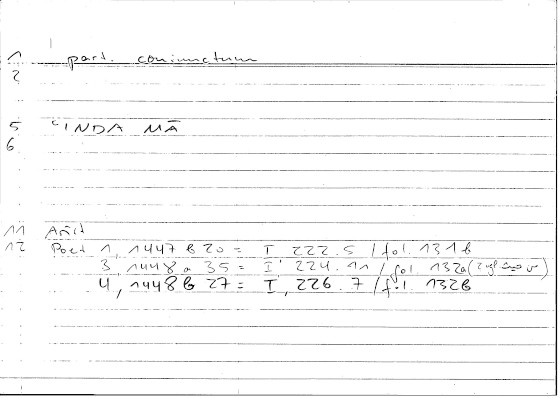 1 part. coniunctum
2
5 ʿINDA MĀ
6
11 Arist
12 Poet 1, 1447 b 20 = I 222.5 / fol. 131b
3, 1448 a 35 = I 224.11 / fol. 132a (
4, 1448 b 27 = I, 226.7 / fol. 132b